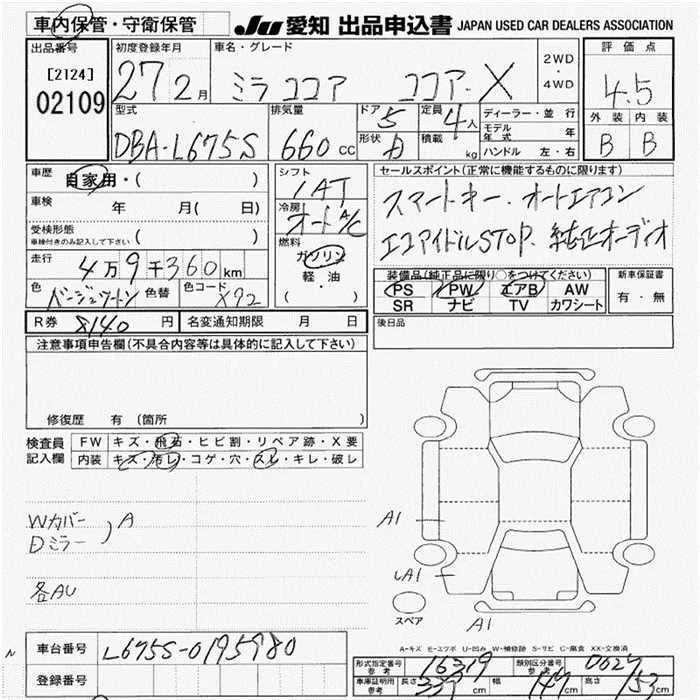 車内保管・守衛保管
JU 愛知 出品申込書 JAPAN USED CAR DEALERS ASSOCIATION
出品番号 初度登録年月 車名・グレード 評価点
[2124]
02109
27 2月 ミラ ココア ココア X 2WD・4WD 4.5
型式 排気量 ドア 5 定員 4人 ディーラー・並行 外装 内装
DBA-L675S 660cc 形状 積載 kg モデル年式 年 B B
ハンドル 左・右
車歴 自家用・( ) シフト セールスポイント(正常に機能するものに限ります)
1AT
車検 年 月(日) 冷房 スマートキー. オートエアコン
オートA/C
受検形態 エコアイドルSTOP. 純正オーディオ
車検付きのみ記入して下さい ( ) 燃料
ガソリン
走行 4万9千360km 軽・油 装備品(純正品に限り○をつけてください) 新車保証書
( ) PS PW エアB AW 有・無
色 ベージュツートン 色替 色コード X92 SR ナビ TV カワシート
R券 8140円 名変通知期限 月 日 後日品
注意事項申告欄(不具合内容等は具体的に記入して下さい)
修復歴 有 (箇所 )
検査員 FW キズ・飛石・ヒビ割・リペア跡・X要
記入欄 内装 キズ・汚レ・コゲ・穴・スレ・キレ・破レ
Wカバー
Dミラー ) A
A1
各AU
A1
スペア
A1
N
A-キズ E-エクボ U-凹み W-補修跡 S-サビ C-腐食 XX-交換済
車台番号 L675S-0195980
形式指定番号 参考 16319 類別区分番号 参考 0627
登録番号
車庫証明用 参考 長さ 339cm 幅 147cm 高さ 153cm